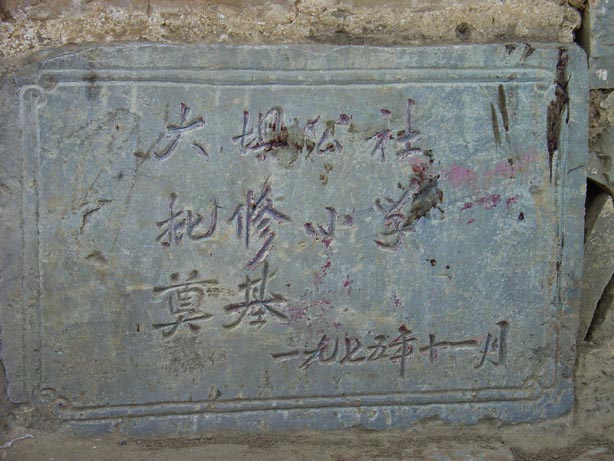 大坝公社
批修小学
奠基
一九七五年十一月